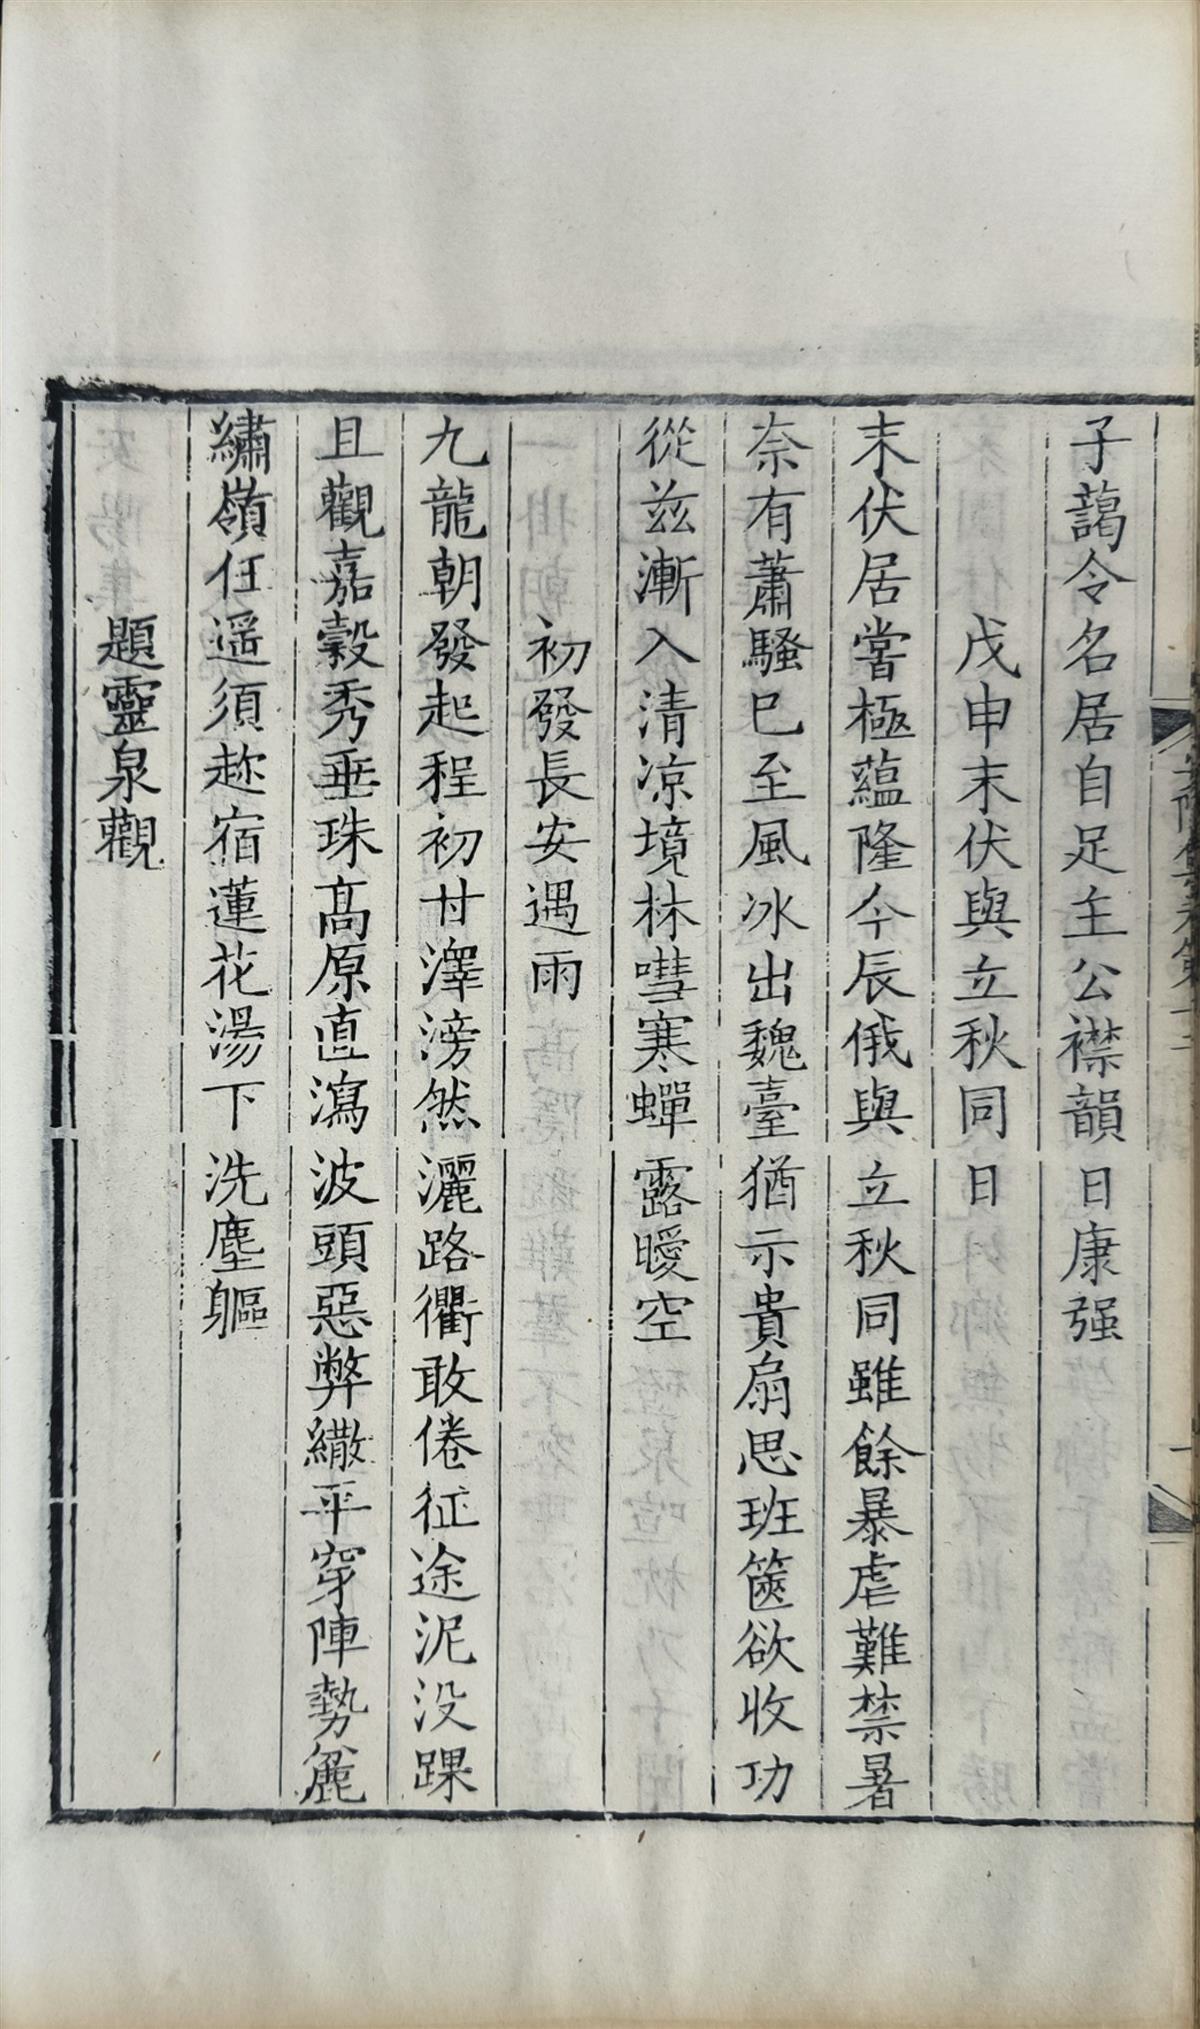 子藹令名居自足主公襟韻日康强
戊申末伏與立秋同日
末伏居嘗極蘊隆今辰俄與立秋同雖餘暴虐難禁暑
奈有蕭騷巳至風冰出魏臺猶示貴扇思班篋欲收功
從兹漸入清凉境林嘒寒蟬露曖空
初發長安遇雨
九龍朝發起程初甘澤滂然灑路衢敢倦征途泥没踝
且觀嘉穀秀垂珠高原直瀉波頭惡弊繖平穿陣勢麄
繡嶺任遥須趂宿蓮花湯下洗塵軀
題靈泉觀